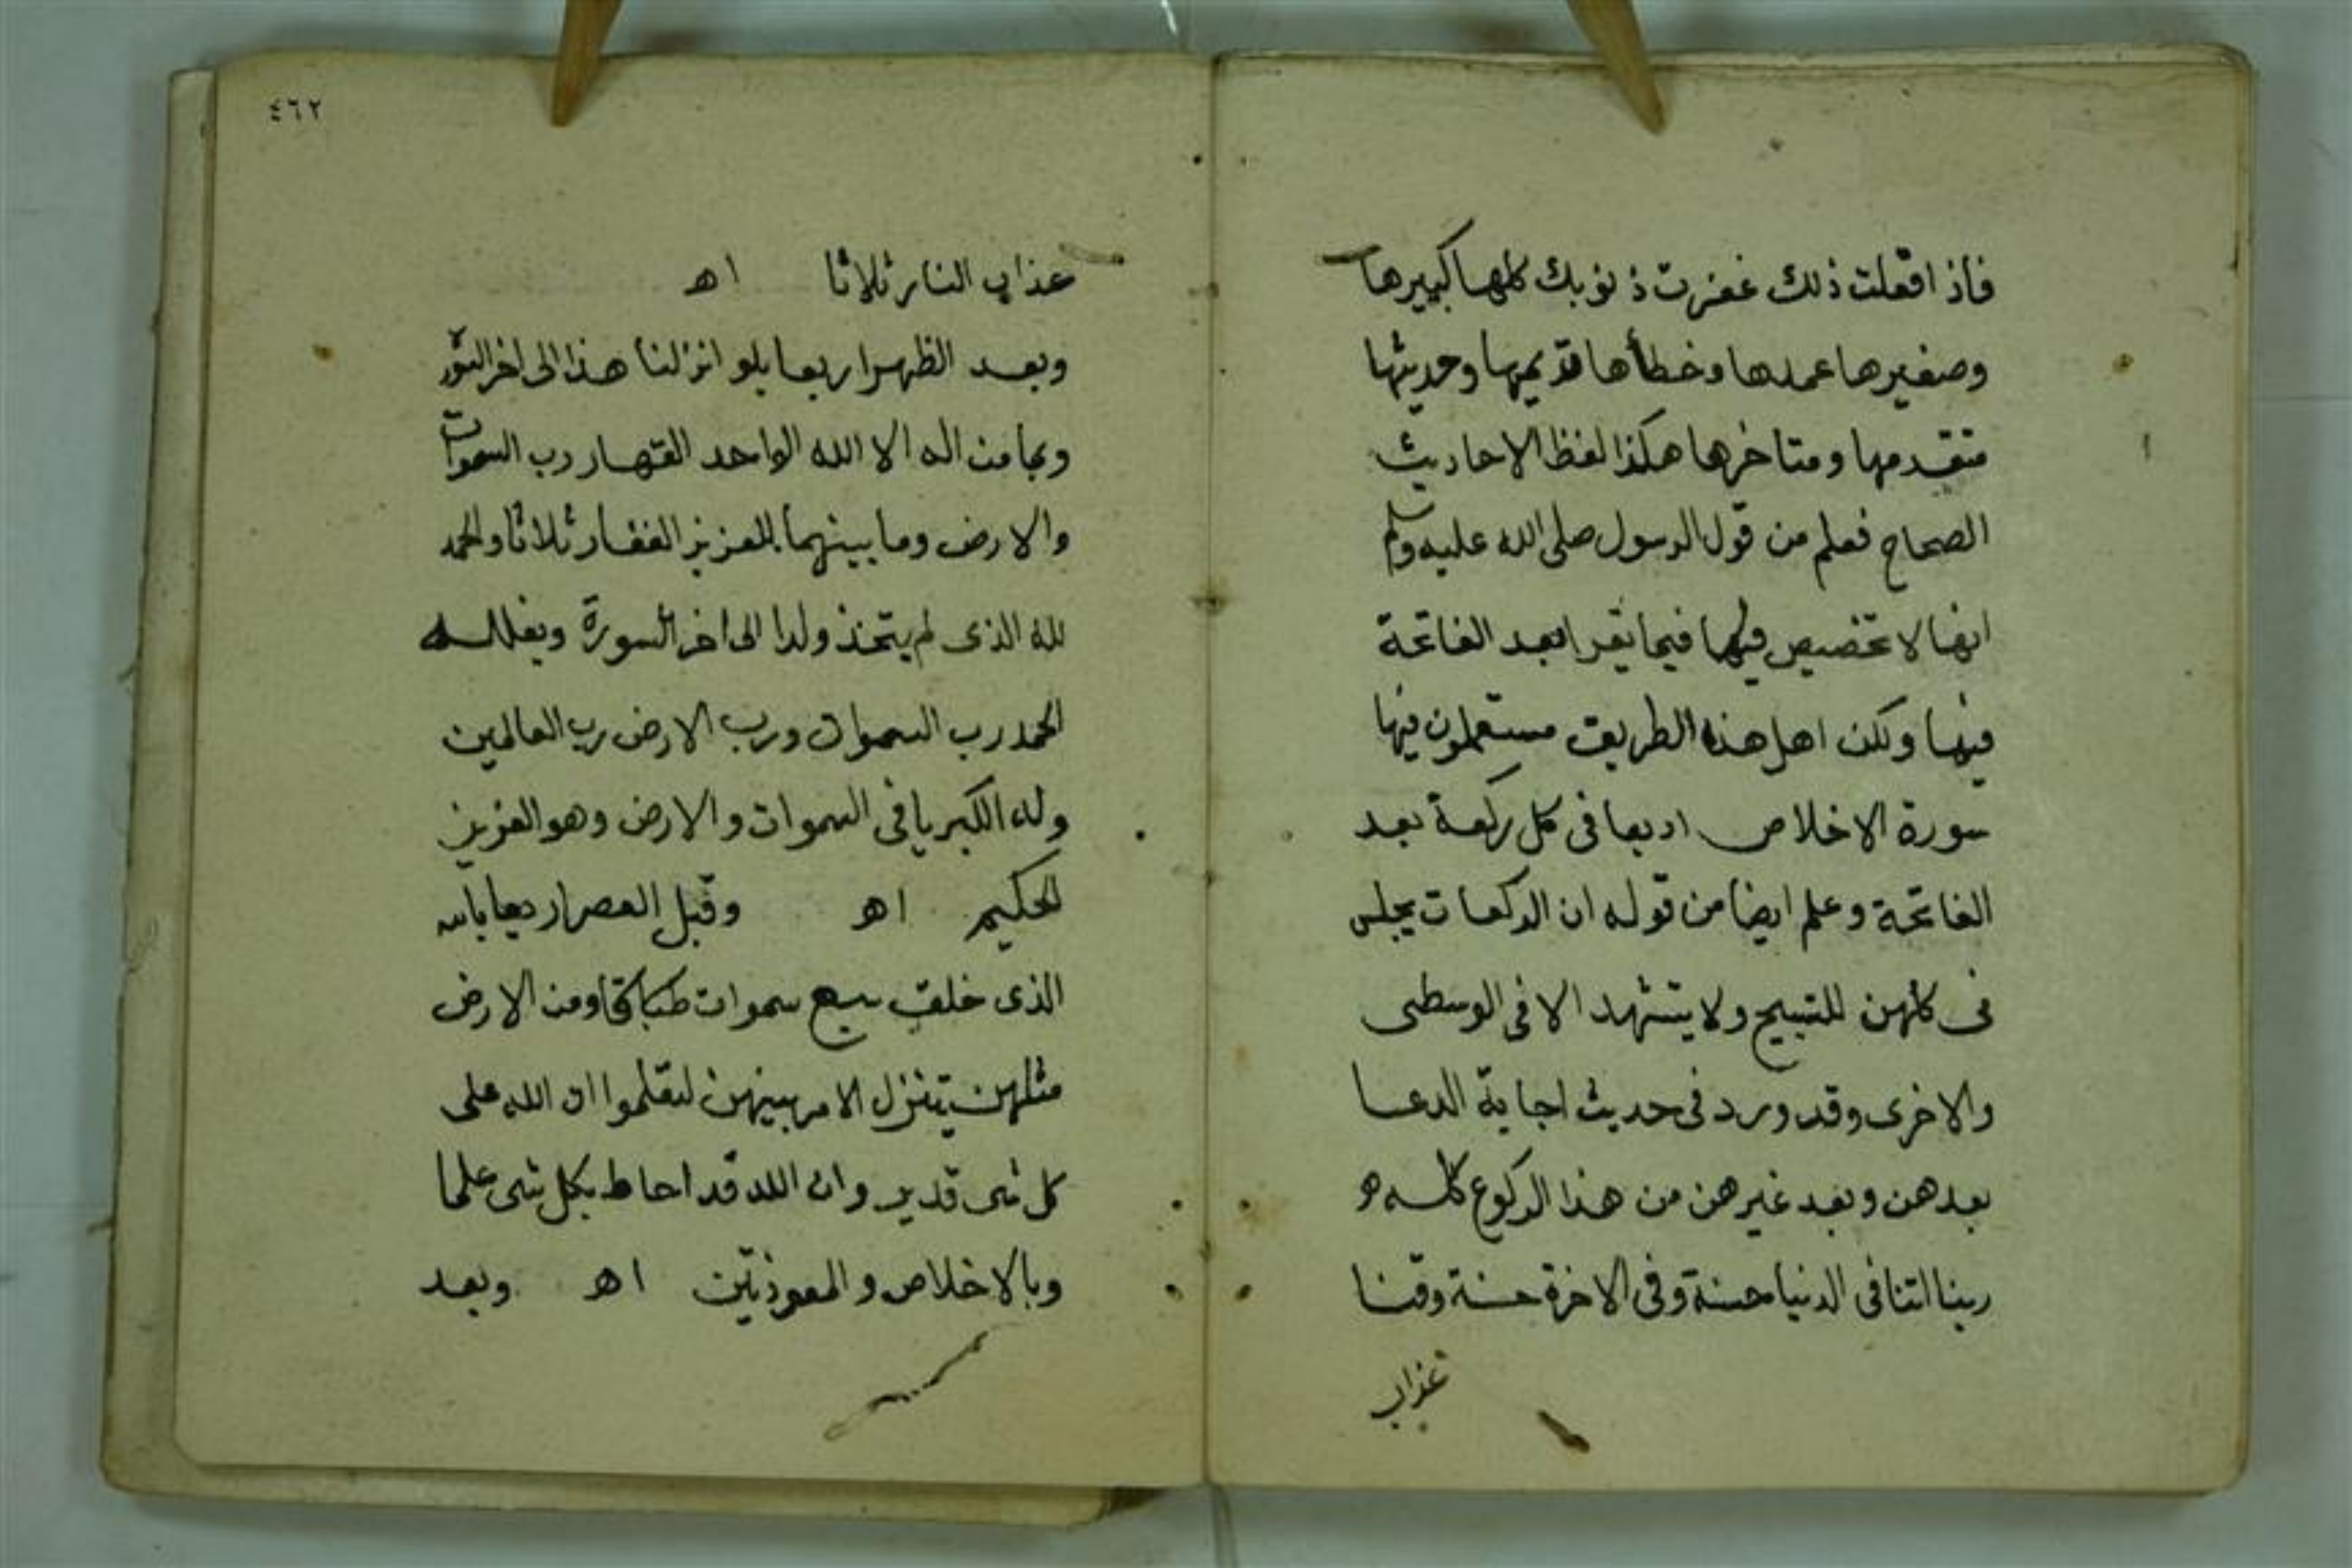 فاذا فعلت ذلك غفرت ذنوبك كلها كبيرها
وصغيرها عمدها وخطأها قديمها وحديثها
متقدمها ومتاخرها هكذا لفظ الاحاديث
الصحاح فعلم من قول الرسول صلى الله عليه وسلم
انها لا تخصيص فيها فيما يقرا بعد الفاتحة
فيها ولكن اهل هذه الطريق مستعملون فيها
سورة الاخلاص اربعا فى كل ركعة بعد
الفاتحة وعلم ايضا من قوله ان الركعات يجلس
فى كلهن للتسبيح ولا يتشهد الا فى الوسطى
والاخرى وقد ورد فى حديث اجابة الدعا
بعدهن وبعد غيرهن من هذا الركوع كله
ربنا اتنا فى الدنيا حسنة وفى الاخرة حسنة وقنا
عذاب
٤٦٢
عذاب النار ثلاثا اه
وبعد الظهر اربعا بلو انزلنا هذا الى اخر
وبما من اله الا الله الواحد القهار رب السموات
والارض وما بينهما العزيز الغفار ثلاثا والحمد
لله الذى لم يتخذ ولدا الى اخر السورة
الحمد رب السموات ورب الارض رب العالمين
وله الكبريا فى السموات والارض وهو العزيز
الحكيم اه وقبل العصر اربعا بالله
الذى خلق سبع سموات طباقا ومن الارض
مثلهن يتنزل الامر بينهن لتعلموا ان الله على
كل شى قدير وان الله قد احاط بكل شى علما
وبالاخلاص والمعوذتين اه وبعد